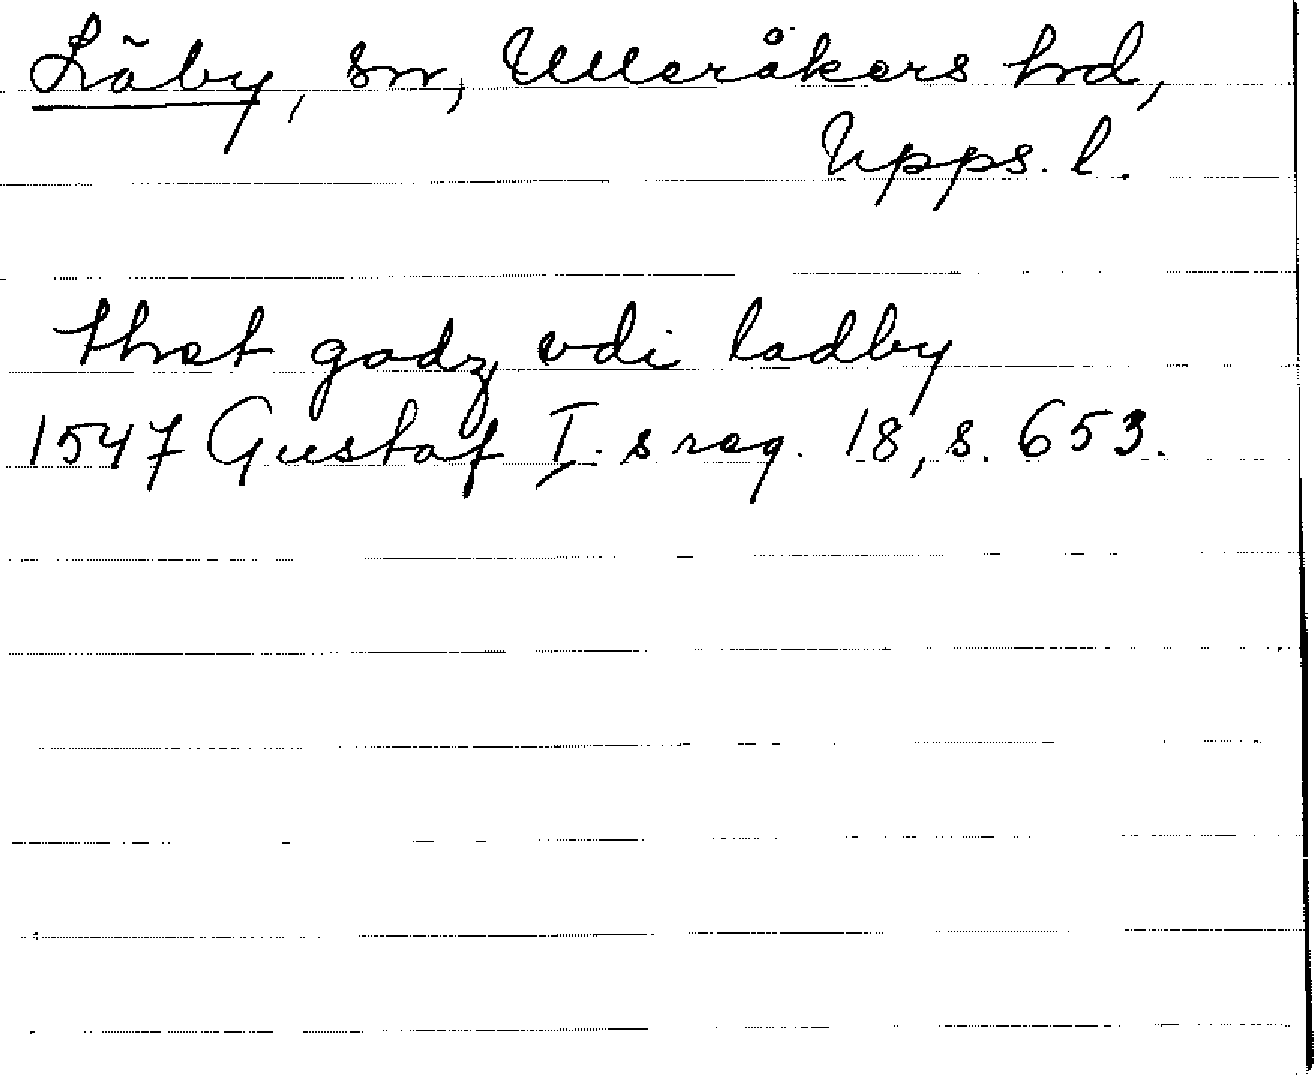 Läby, sn, Ulleråkers hd,
Upps. l.
thet godz vdi ladby
1547 Gustaf I. s reg. 18, s. 653.